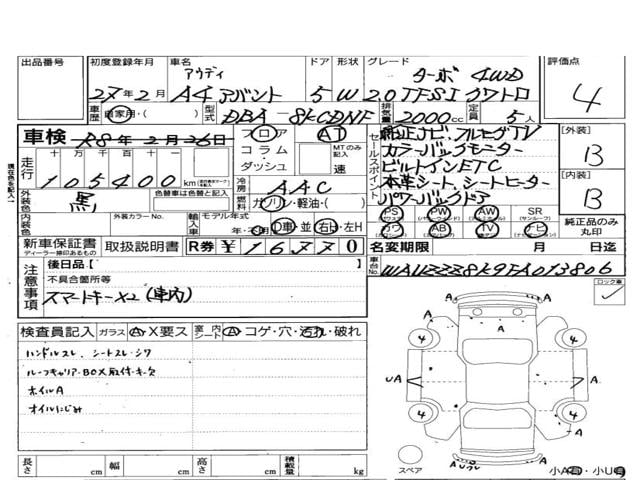 出品番号 初度登録年月 車名 ドア 形状 グレード 評価点
アウディ ターボ 4WD
27年2月 A4 アバント 5 W 2.0 TFSI クワトロ 4
車歴 自家用・( ) 型式 DBA-8KCDNF 排気量 2000cc 定員 5人
車検 R8年2月26日 フロア AT セールスポイント 純正ナビ、フルセグTV [外装]
走行 十 万 千 百 十 コラム MTのみ記入 カラーバックモニター B
105400 km ダッシュ 速 ビルトインETC
現在色を記入 冷房 AAC 本革シート、シートヒーター [内装]
外装色 黒 色替車は色替と記入 燃料 ガソリン・軽油・( ) パワーバックドア B
内装色 外装カラーNo. 輸入車 モデル年式 PS PW AW SR
年・ D車・並 右H・左H カワ AB TV ナビ 純正品のみ丸印
新車保証書 取扱説明書 R券 ¥16770 名変期限 月 日迄
ディーラー捺印あるもの
車台No. WAUZZZ8K9FA013806
注意事項 後日品[ ]
不具合箇所等
スマートキーx2(車内)
ロック車 ✓
検査員記入 ガラス A・X要ス 室内シート A・コゲ・穴・汚れ・破れ
ハンドルスレ、シートスレ・シワ
ルーフキャリア・BOX取付キー欠
ホイルA
オイルにじみ
A
4 4
UA A A
4 4
A
スペア
小A有・小U有
長さ cm 幅 cm 高さ cm 積載量 kg